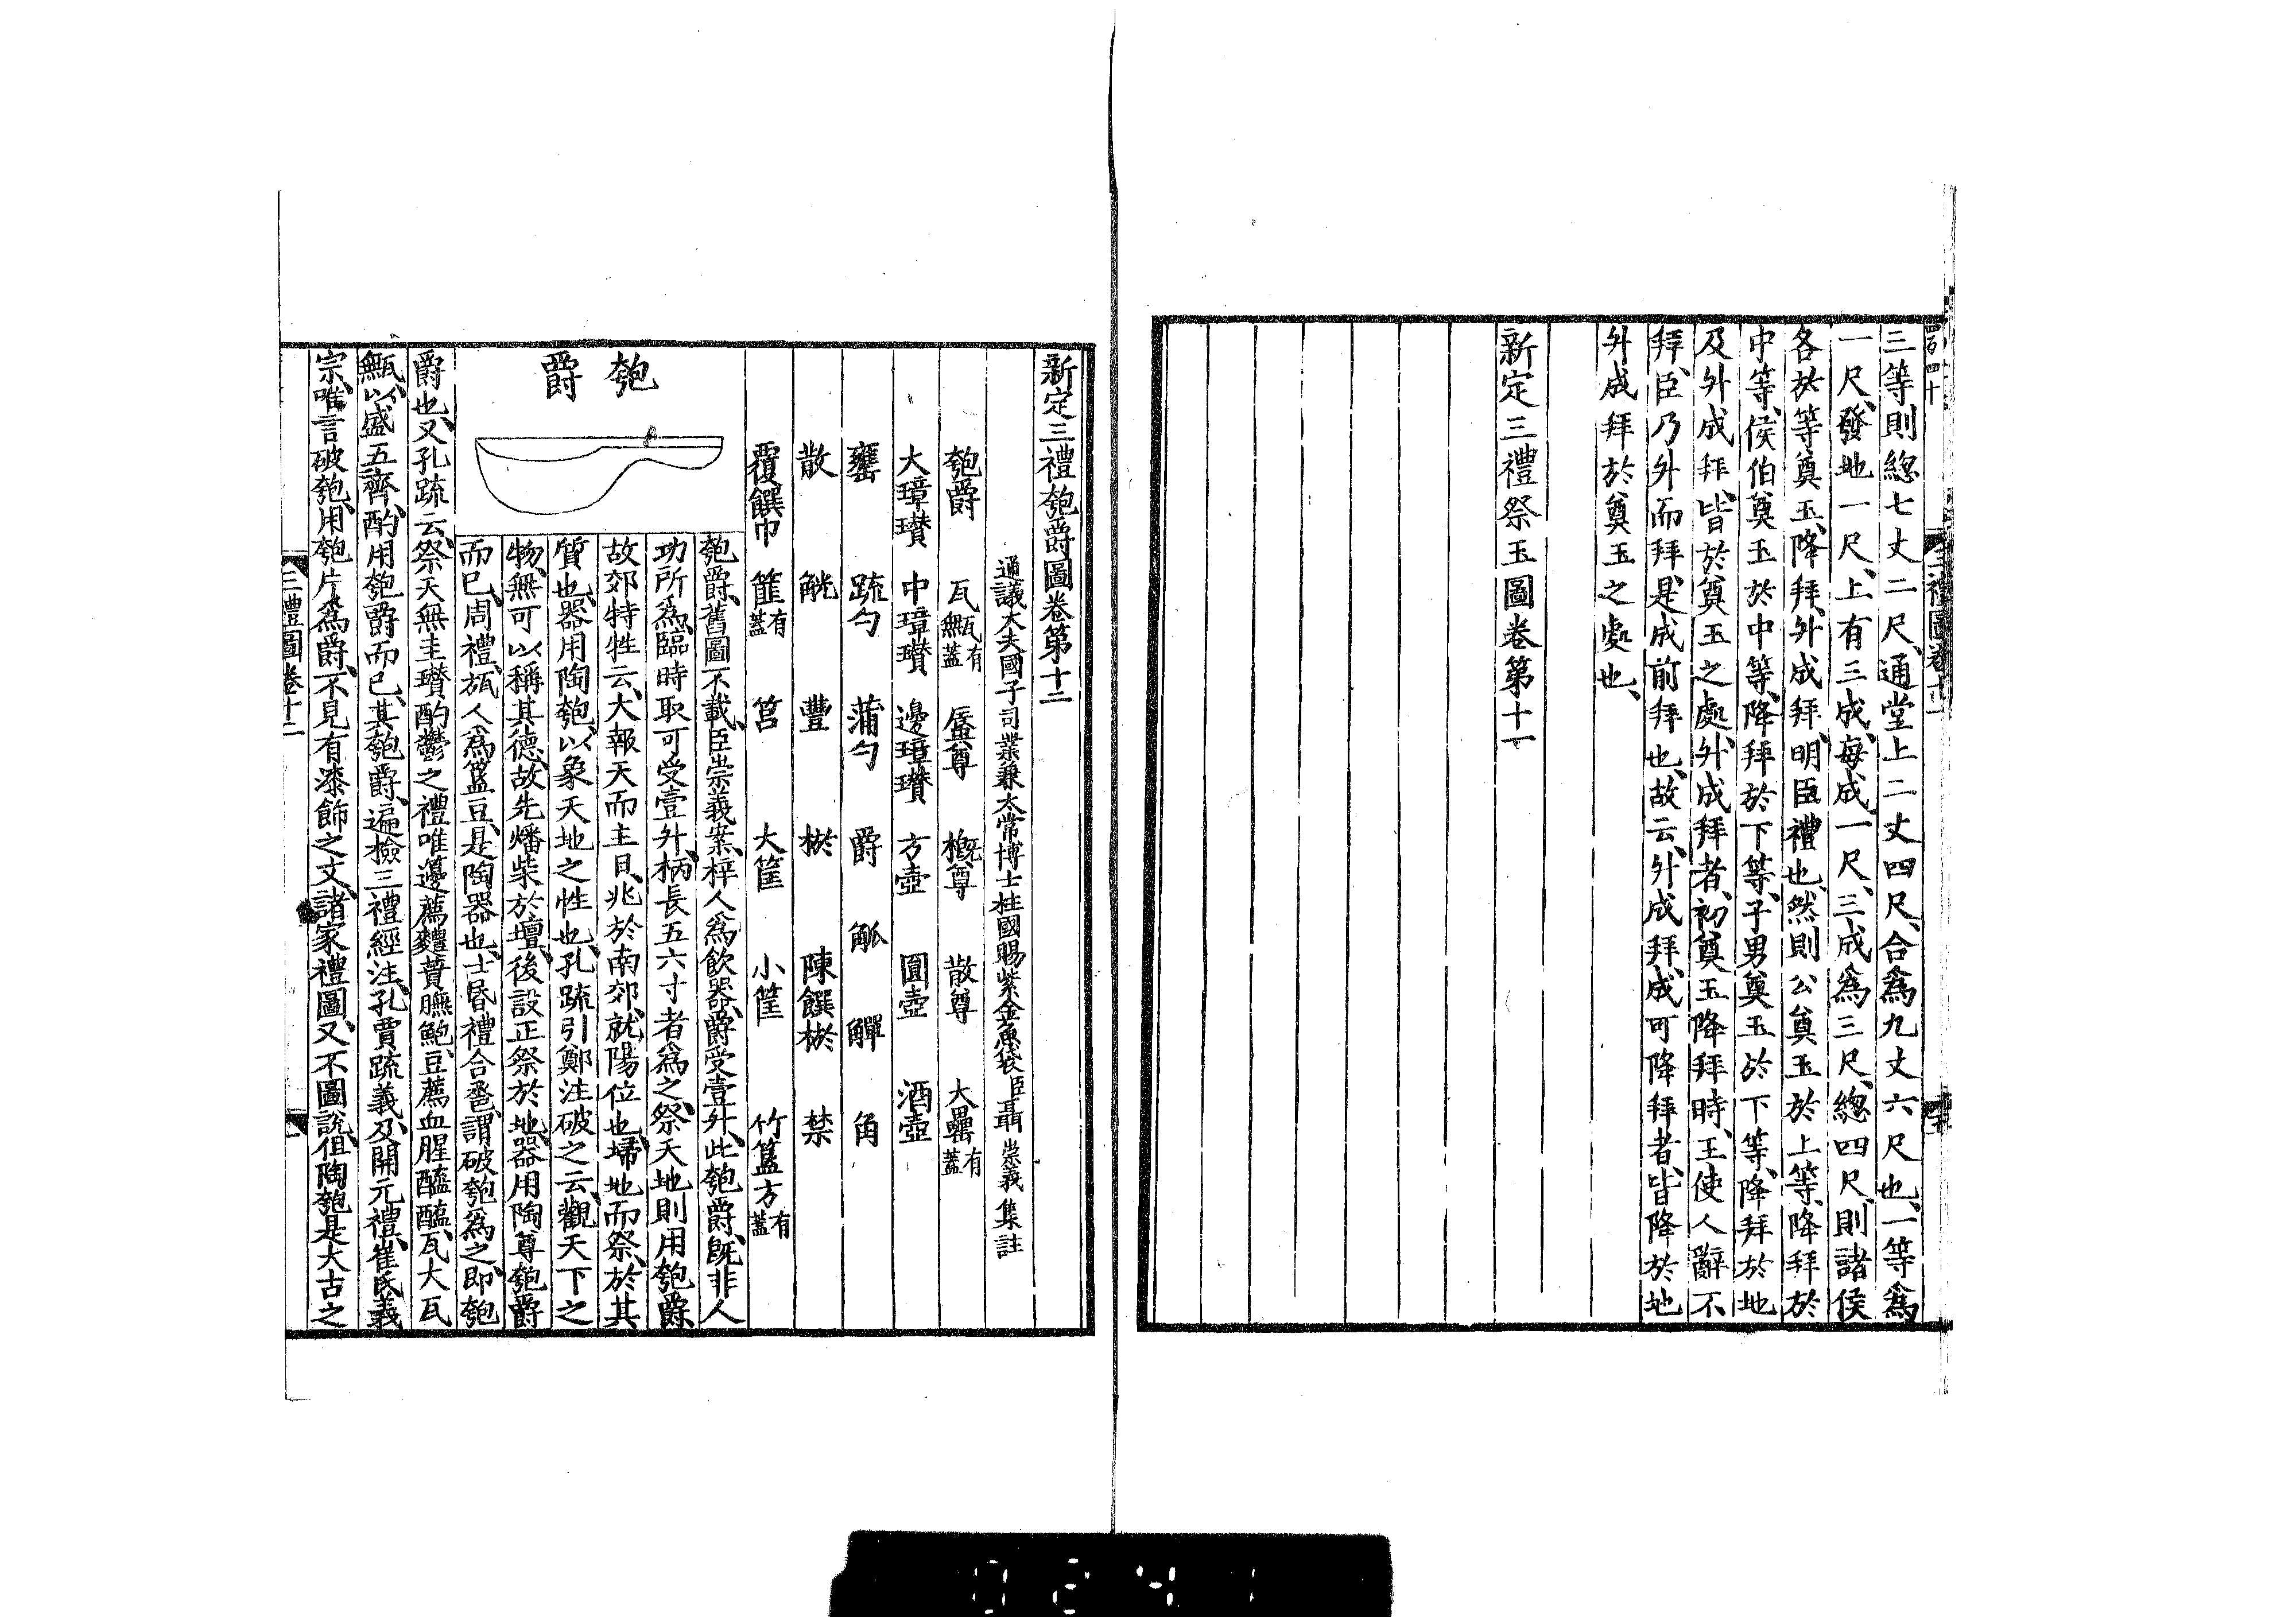 三等則緫七丈二尺、通堂上二丈四尺、合爲九丈六尺也、一等爲
一尺、發地一尺、上有三成、每成一尺、三成爲三尺、緫四尺、則諸侯
各於等奠玉、降拜、升成拜、明臣禮也、然則公奠玉於上等、降拜於
中等、侯伯奠玉於中等、降拜於下等、子男奠玉於下等、降拜於地
及升成拜、皆於奠玉之處、升成拜者、初奠玉降拜時、王使人辭不
拜、臣乃升而拜、是成前拜也、故云、升成拜、成可降拜者、皆降於地
升成拜於奠玉之處也、
新定三禮祭玉圖卷第十一
新定三禮匏爵圖卷第十二
通議大夫國子司業兼太常博士柱國賜紫金魚袋臣聶崇義集註
匏爵　瓦甒有蓋　蜃尊　概尊　散尊　大罍有蓋
大璋瓚　中璋瓚　邊璋瓚　方壺　圓壺　酒壺
罋　疏勺　蒲勺　爵　觚　觶　角
散　觥　豐　棜　陳饌棜　禁
覆饌巾　篚有蓋　筥　大筐　小筐　竹簋方有蓋
匏爵
匏爵、舊圖不載、臣崇義案、梓人爲飲器、爵受壹升、此匏爵、旣非人
功所爲、臨時取可受壹升、柄長五六寸者爲之、祭天地則用匏爵
故郊特牲云、大報天而主日、兆於南郊、就陽位也、埽地而祭、於其
質也、器用陶匏、以象天地之性也、孔疏引鄭注破之云、觀天下之
物、無可以稱其德、故先燔柴於壇、後設正祭於地、器用陶尊匏爵
而已、周禮、瓬人爲簋豆、是陶器也、士昏禮合卺、謂破匏爲之、即匏
爵也、又孔疏云、祭天無圭瓚酌鬱之禮唯籩薦麷蕡膴鮑、豆薦血腥醓醢、瓦大瓦
甒、以盛五齊、酌用匏爵而已、其匏爵、遍檢三禮經注、孔賈疏義、及開元禮、崔氏義
宗、唯言破匏、用匏片爲爵、不見有漆飾之文、諸家禮圖、又不圖說、但陶匏是大古之
三禮圖卷十二
一